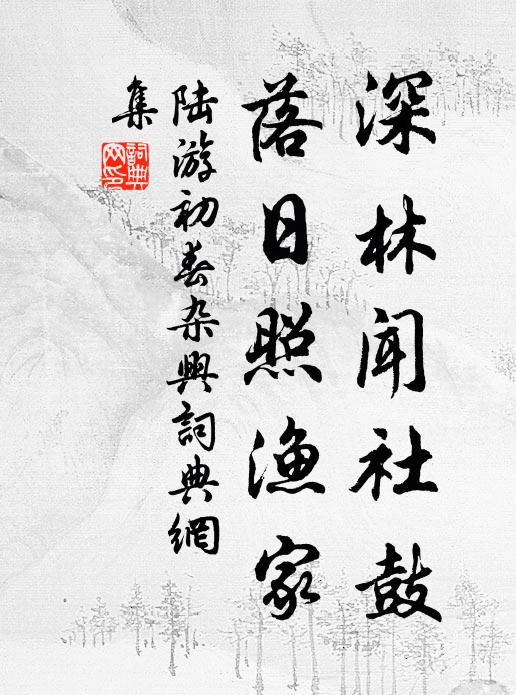 深林闻社鼓
落日照渔家
陆游初春杂兴詞典網
集
詞典网印